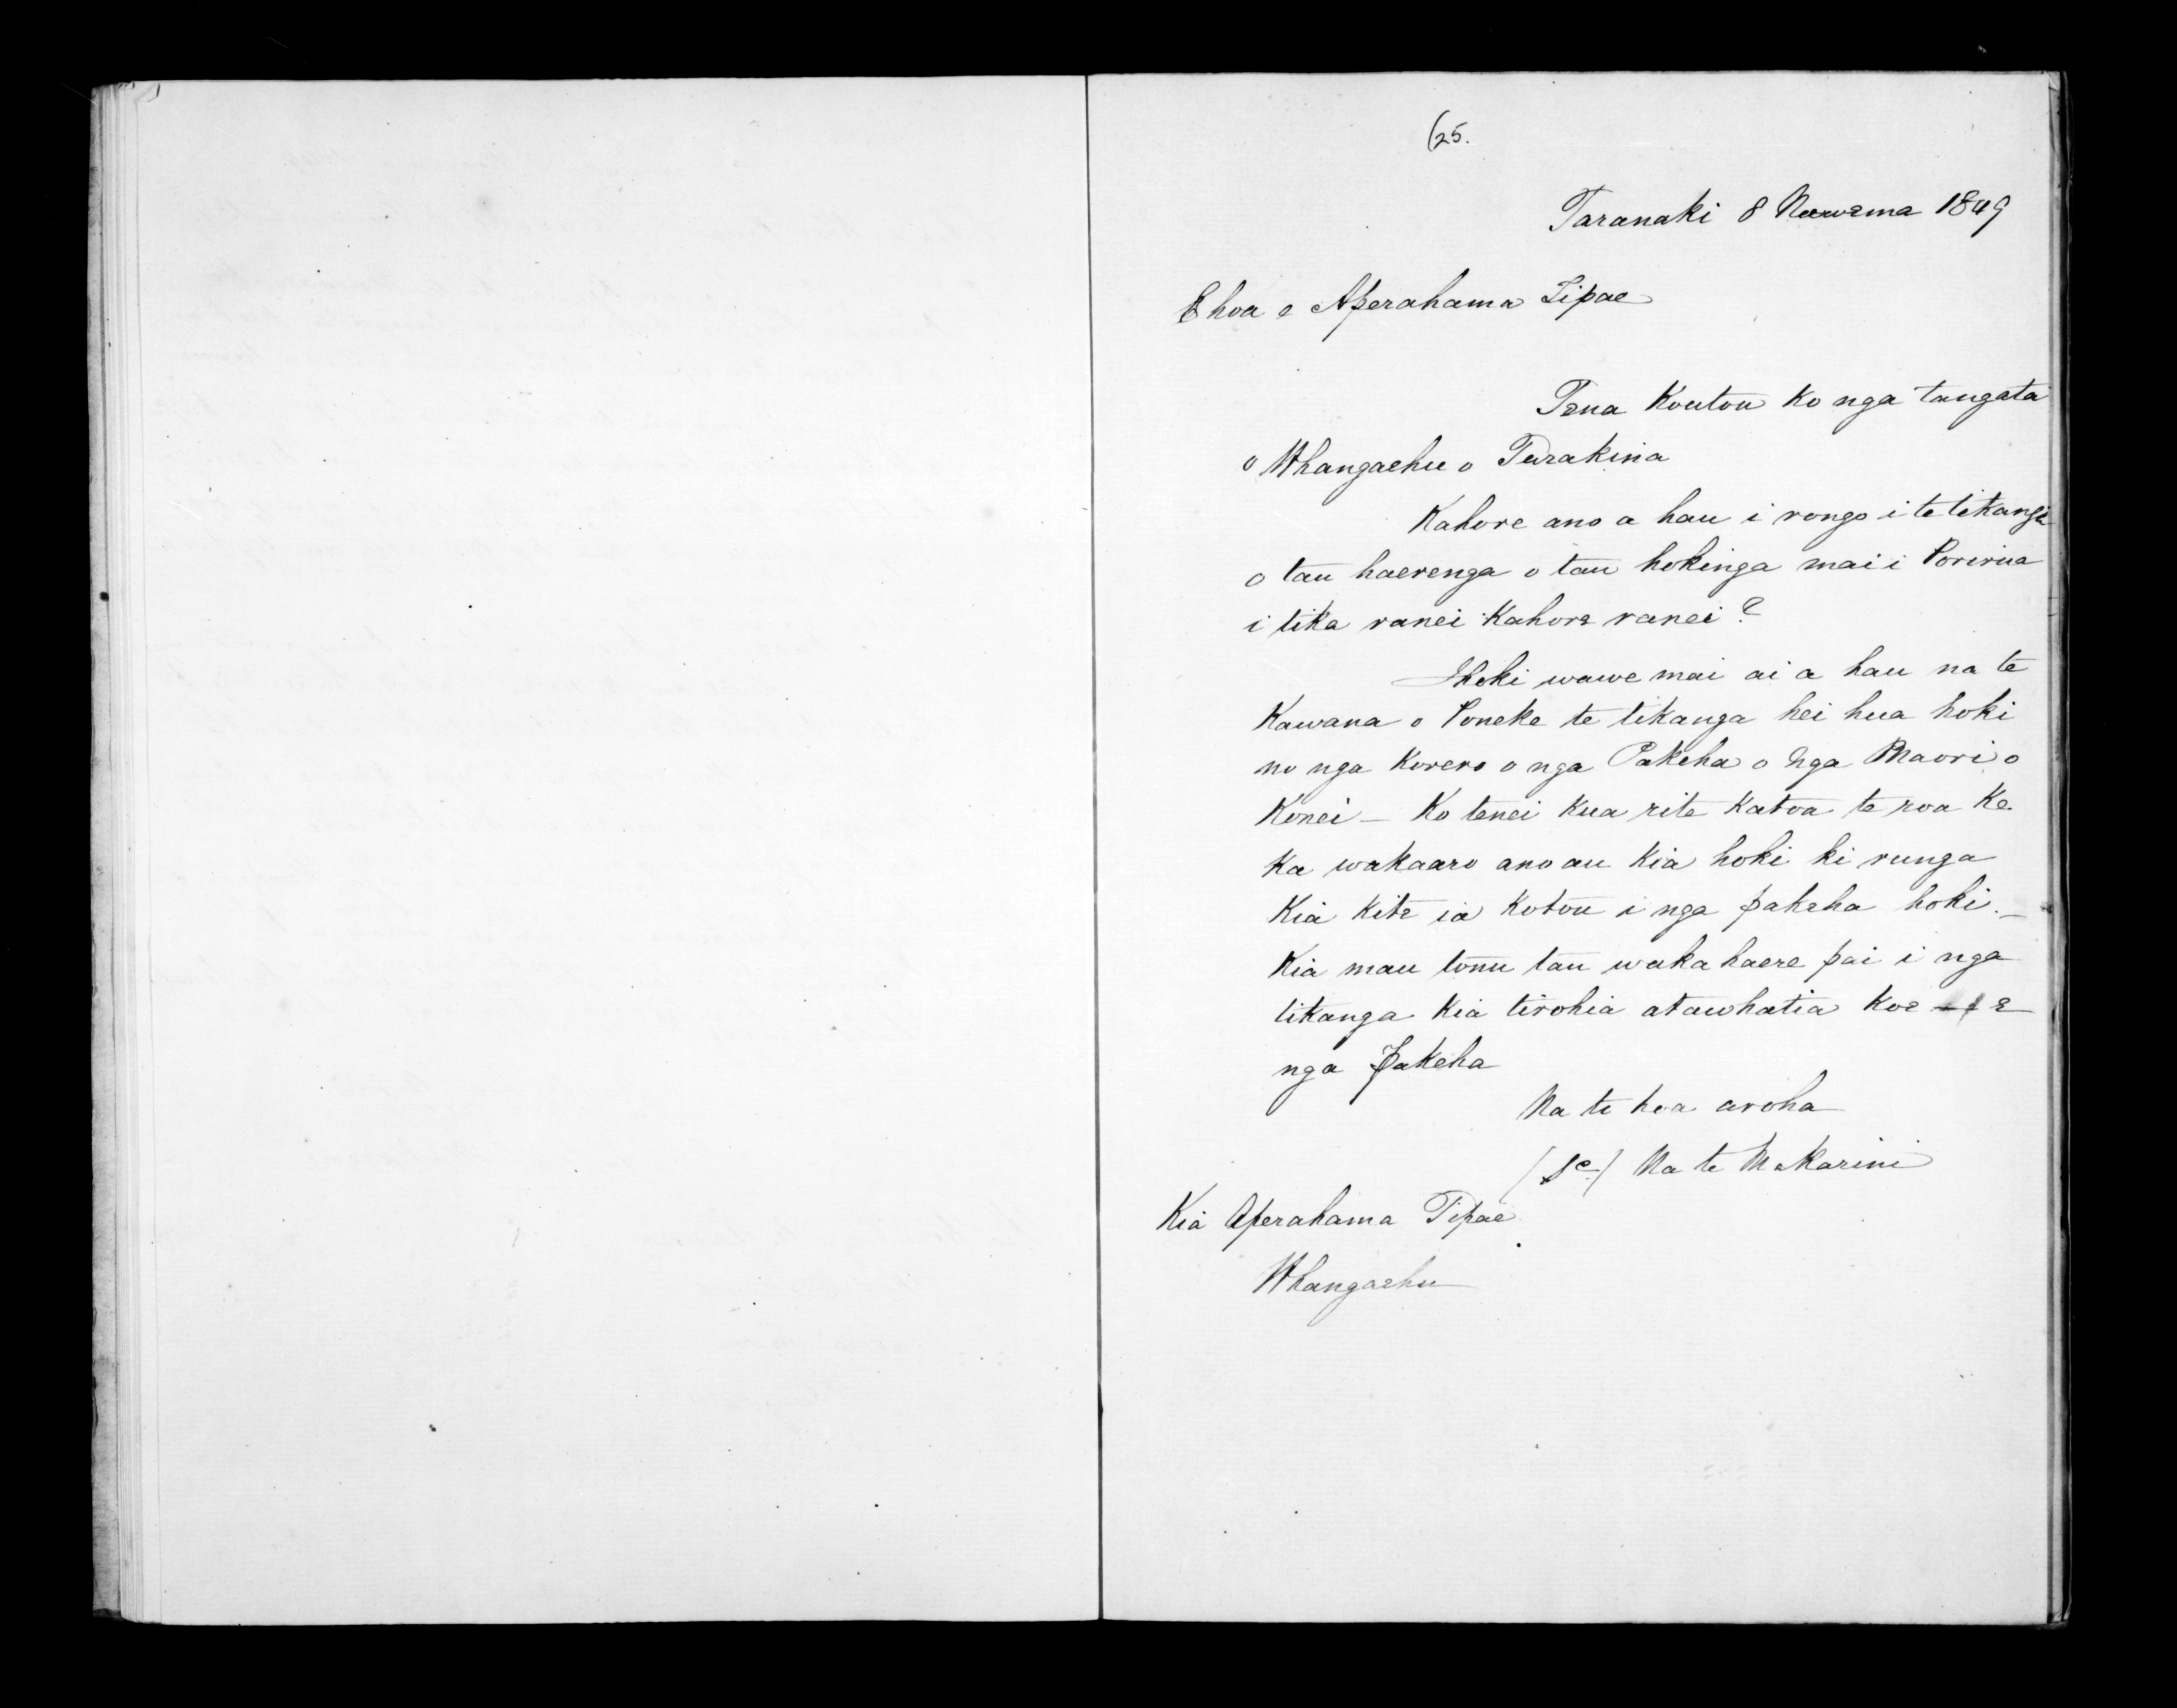 (25.
Taranaki 8 Noewema 1849
E hoa e Aperahama Tipae
Tena Koutou Ko nga tangata
o Whangaehu o Turakina
Kahore ano a hau i rongo i te tikanga
o tau haerenga o tau hokinga mai i Porirua
i tika ranei Kahore ranei?
I hoki wawe mai ai a hau na te
Kawana o Poneke te tikanga hei hua hoki
no nga Korero o nga Pakeha o Nga Maori o
Konei - Ko tenei kua rite katoa te roa Ke.
Ka wakaaro ano au Kia hoki ki runga
Kia Kite ia Kotou i nga pakeha hoki. -
Kia mau tonu tau waka haere pai i nga
tikanga Kia tirohia atawhatia Koe e
nga Pakeha
Na te hoa aroha
Na te Makarini
Kia Aperahama Tipae
Whangaehu